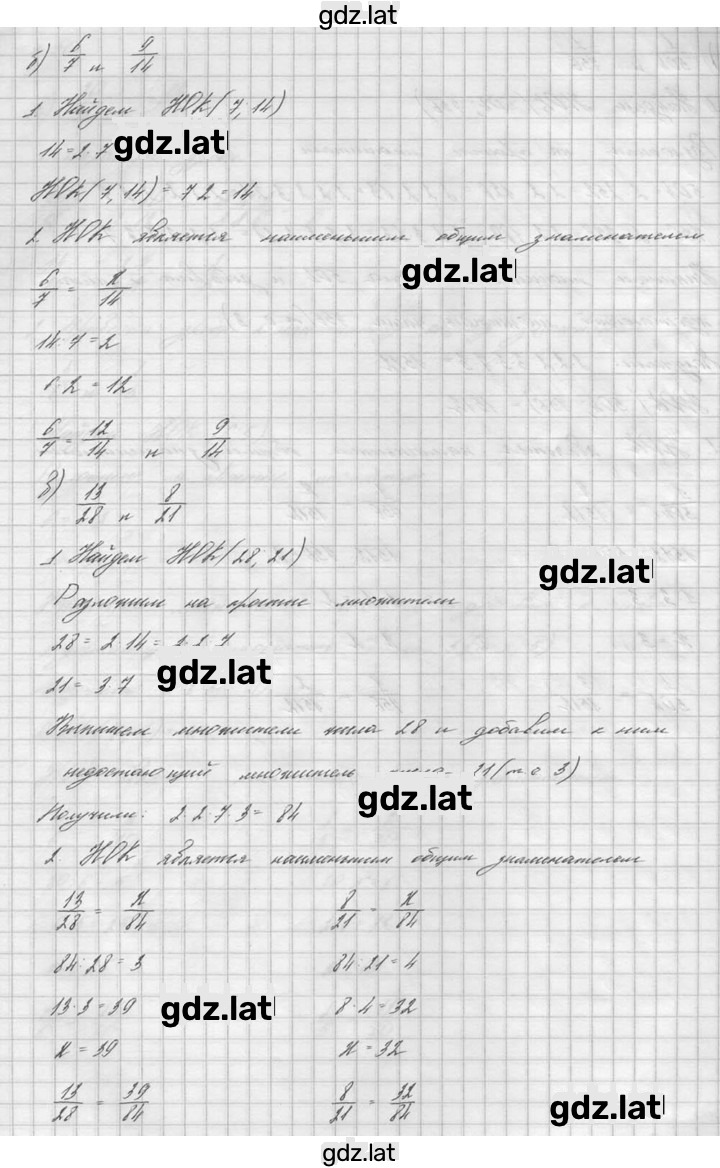 gdz.lat
б) 6/7 и 9/14
1. Найдем НОК(7; 14)
14=2·7
gdz.lat
НОК(7; 14)=7·2=14
2. НОК является наименьшим общим знаменателем
gdz.lat
6/7 = x/14
14:7=2
6·2=12
6/7 = 12/14 и 9/14
в) 13/28 и 8/21
1. Найдем НОК(28; 21)
gdz.lat
Разложим на простые множители
28=2·14=2·2·7
gdz.lat
21=3·7
Выпишем множители числа 28 и добавим к ним
недостающий множитель числа 21(т.е 3)
gdz.lat
Получили: 2·2·7·3=84
2. НОК является наименьшим общим знаменателем
13/28 = x/84 8/21 = x/84
84:28=3 84:21=4
13·3=39 8·4=32
gdz.lat
x=39 x=32
13/28 = 39/84 8/21 = 32/84
gdz.lat
gdz.lat